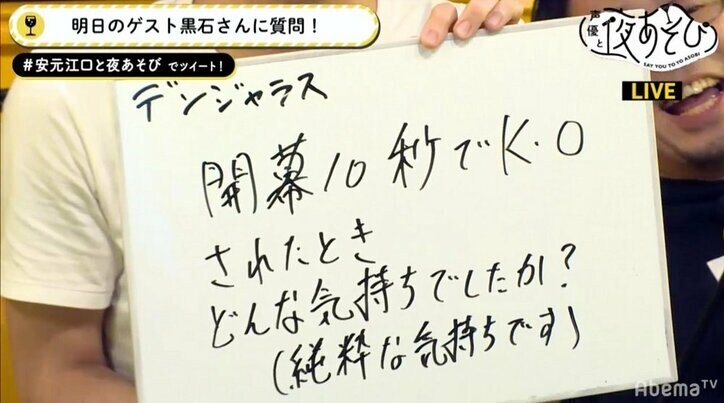 明日のゲスト黒石さんに質問！
#安元江口と夜あそび でツイート！
声優と夜あそび
SAY YOU TO YO ASOBI
LIVE
デンジャラス
開幕10秒でK.O
されたとき
どんな気持ちでしたか?
(純粋な気持ちです)
AbemaTV